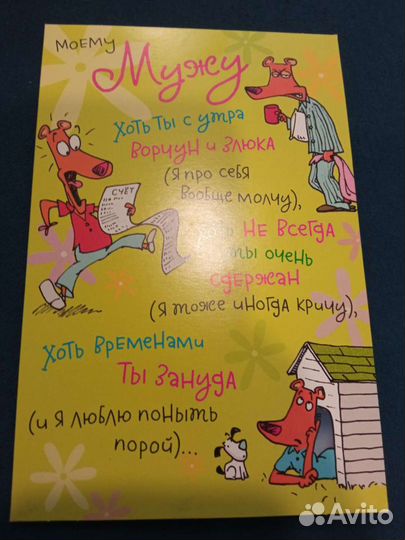 моему
Мужу
Хоть ты с утра
ворчун и злюка
(я про себя
вообще молчу),
не всегда
ты очень
сдержан
(я тоже иногда кричу),
Хоть временами
ты зануда
(и я люблю поныть
порой)...
СЧЁТ
Avito